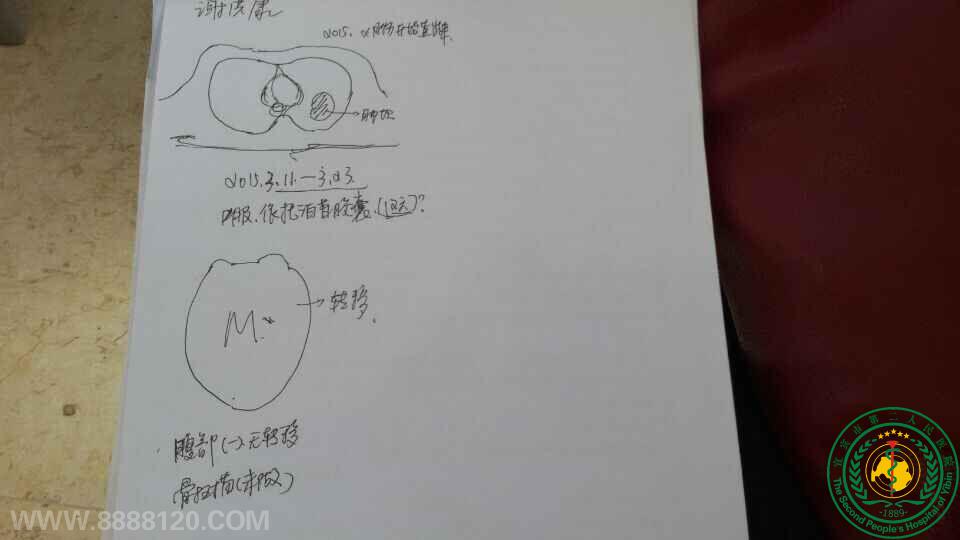 谢洪康
2015. 2月份开始直
→肺
2015.3.11.—3.23.
口服.依托泊苷胶囊.(12天)?
M.
→转移.
腹部(-)无转移
骨扫描(未做)
WWW.8888120.COM
宜宾市第二人民医院
-1889-
The Second People's Hospital of Yibin